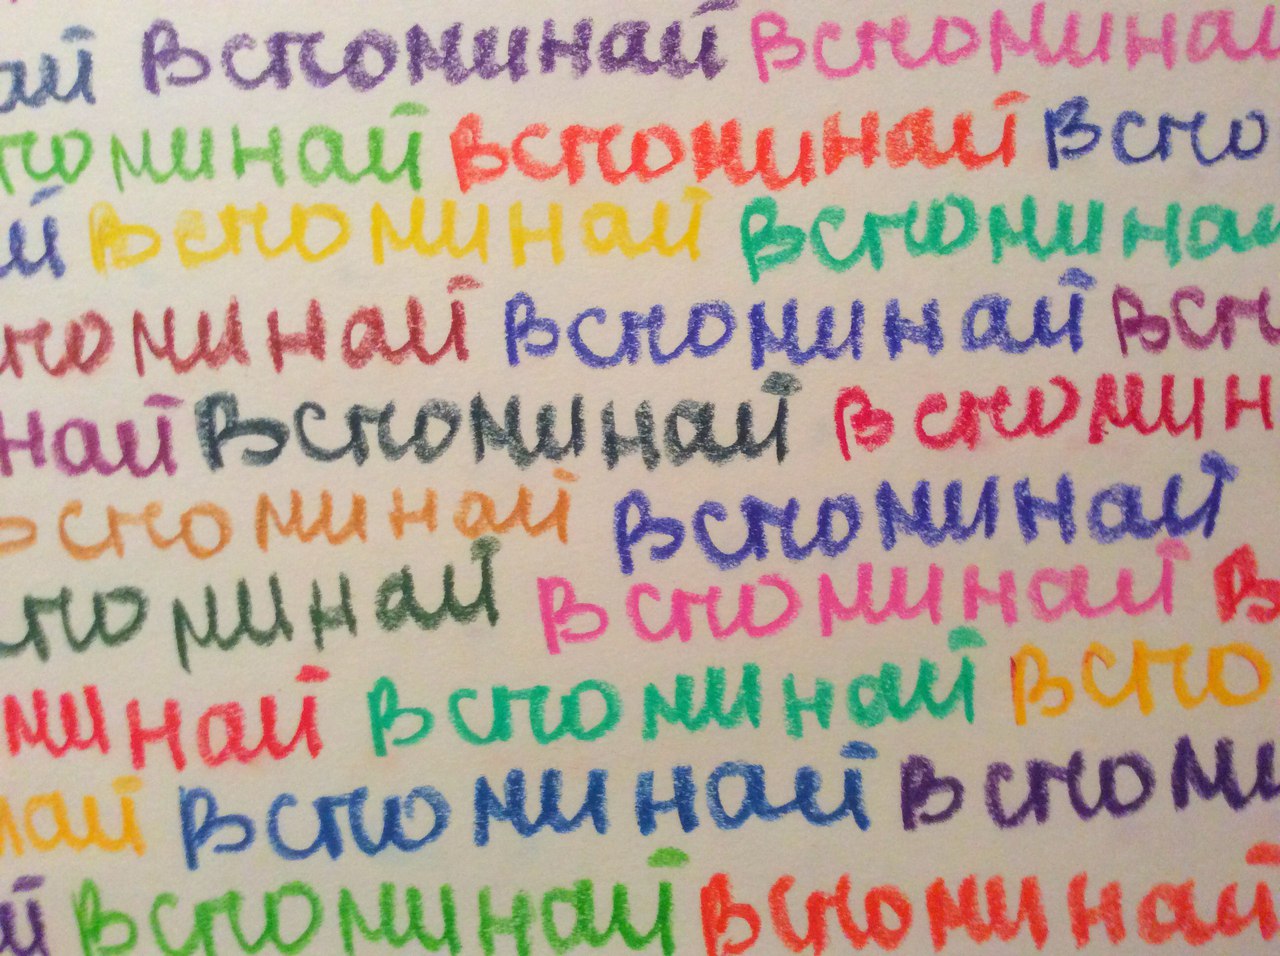 ай Вспоминай Вспоминаи
поминай Вспоминай Вспо
й Вспоминай Вспоминаи
поминай Вспоминай Всп
най Вспоминай Вспомин
Вспоминай Вспоминай
споминай Вспоминай В
минай Вспоминай Вспо
най Вспоминай Вспоми
й Вспоминай Вспоминай